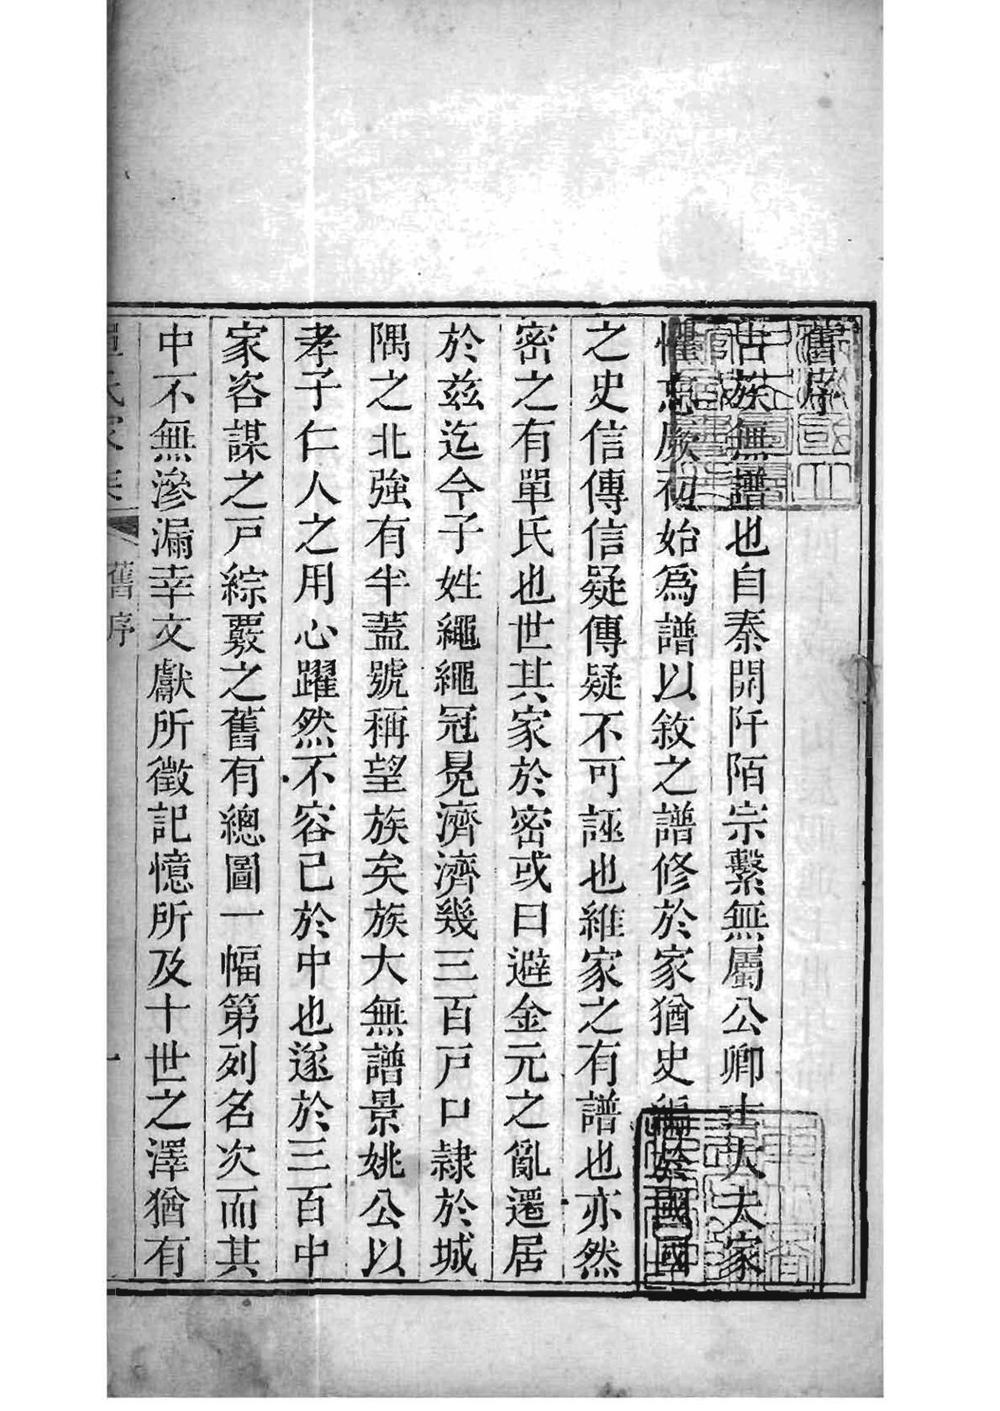 舊序
古族無譜也自秦開阡陌宗繫無屬公卿士大夫家
懼忘厥初始爲譜以敘之譜修於家猶史編於國國
之史信傳信疑傳疑不可誣也維家之有譜也亦然
密之有單氏也世其家於密或曰避金元之亂遷居
於兹迄今子姓繩繩冠冕濟濟幾三百戸口隸於城
隅之北強有半蓋號稱望族矣族大無譜景姚公以
孝子仁人之用心躍然不容已於中也遂於三百中
家咨謀之戸綜覈之舊有總圖一幅第列名次而其
中不無滲漏幸文獻所徵記憶所及十世之澤猶有
單氏家乘 舊序 一